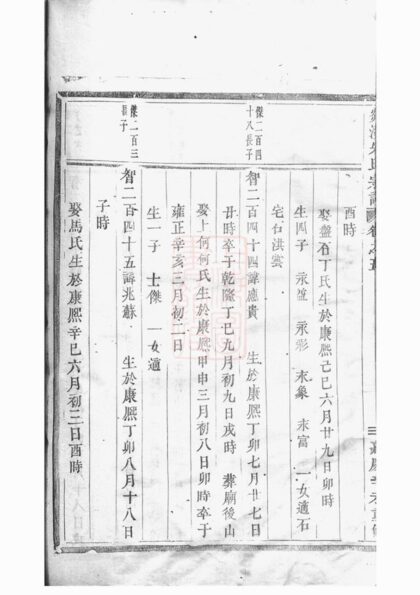 酉時
娶盤石丁氏生於康熙己巳六月廿九日卯時
生四子 永笠 永彩 永象 永富 一女適石
宅石洪雲
傑二百四
十八長子
智二百四十四諱應貴 生於康熙丁卯七月廿七日
丑時卒于乾隆丁巳九月初九日戌時 葬廟後山
娶上何何氏生於康熙甲申三月初八日卯時卒于
雍正辛亥三月初二日
生一子 士傑 一女適
傑二百三
長子
智二百四十五諱兆蘇 生於康熙丁卯八月十八日
子時
娶馬氏生於康熙辛巳六月初二日酉時